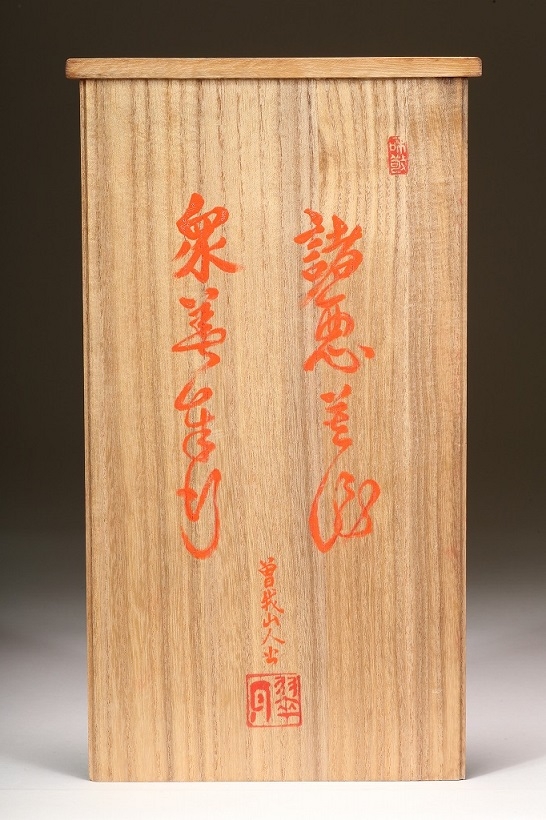 諸悪莫作
衆善奉行
曽我山人書
翠月